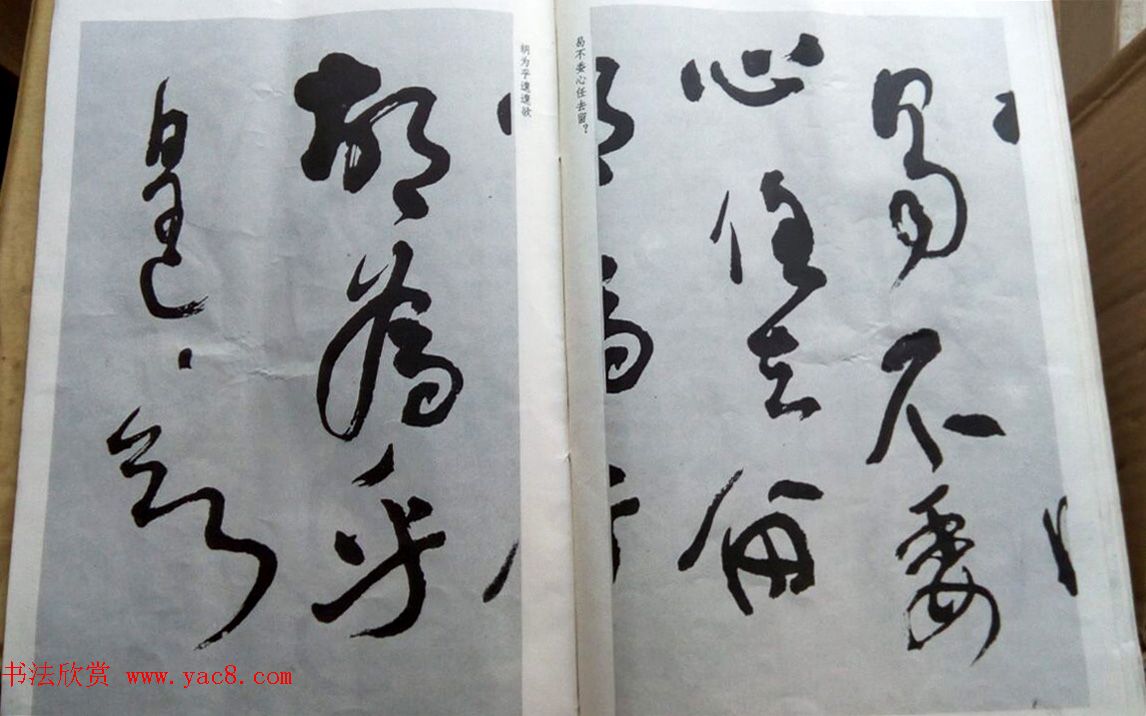 曷不委
心任去留
曷不委心任去留？
胡为乎遑遑欲
胡為乎
遑〻欲
书法欣赏 www.yac8.com